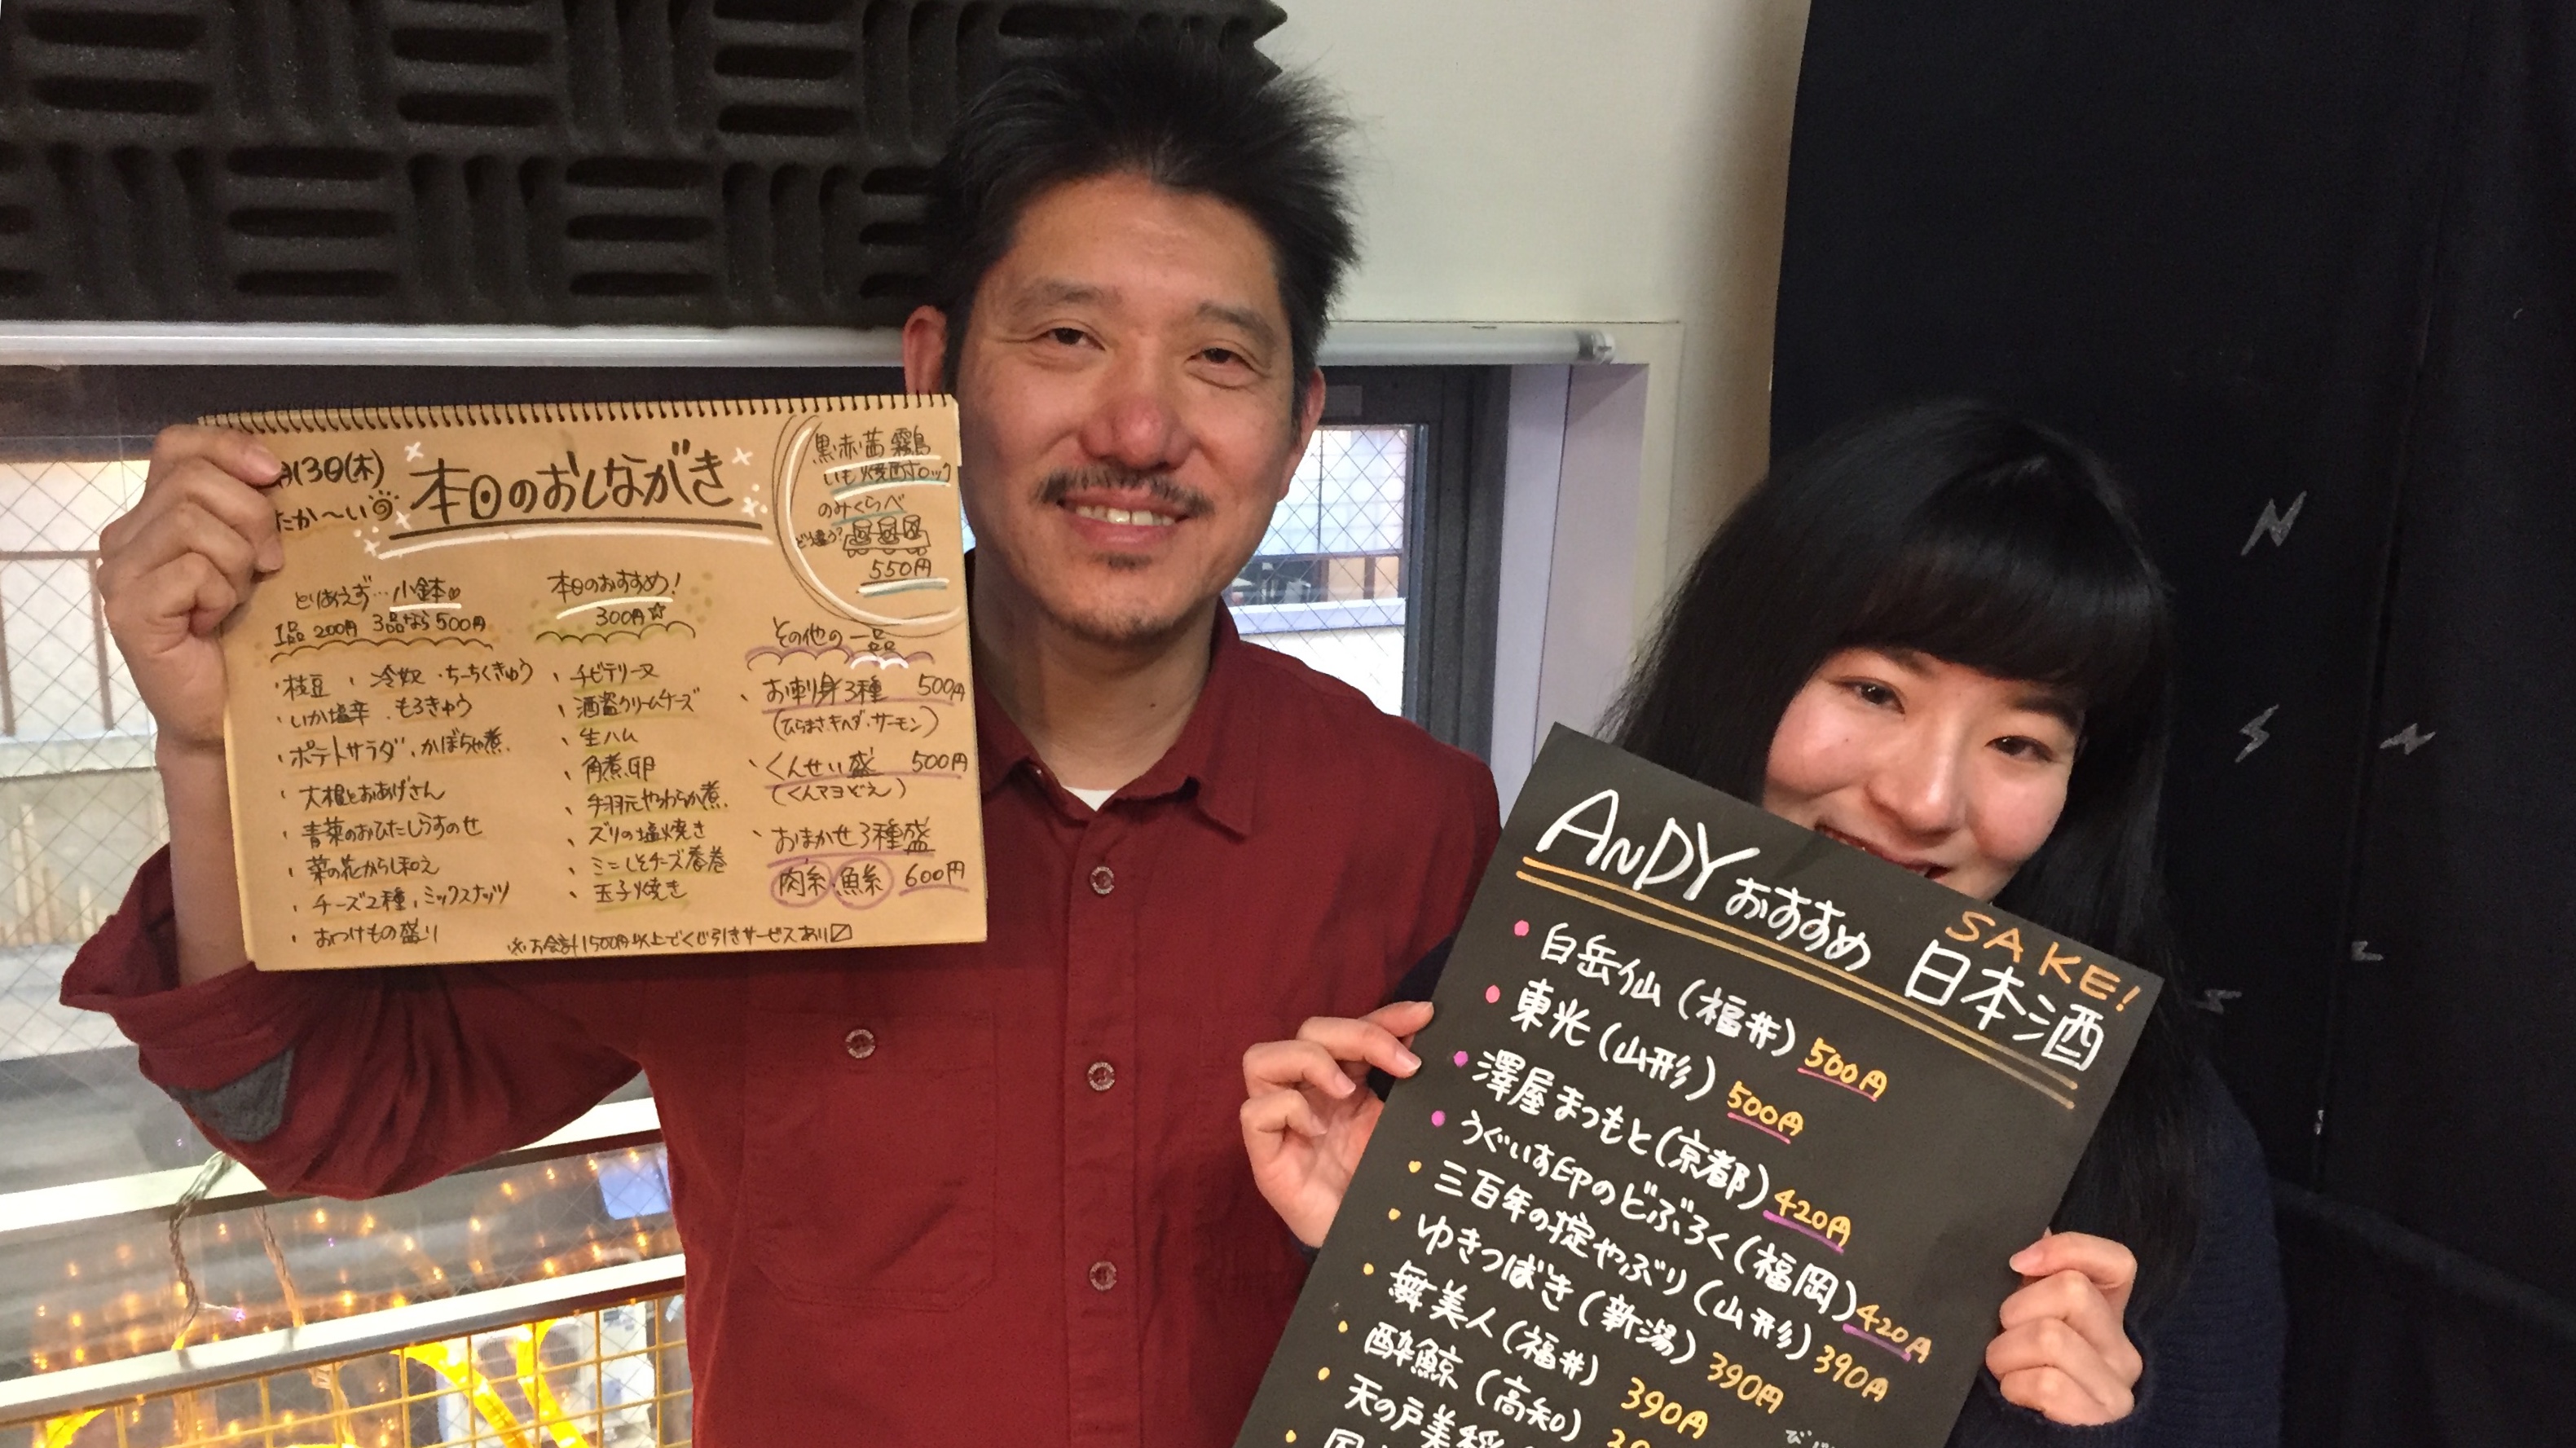 月13日(木)
たか〜い
本日のおしながき
黒赤茜霧島
いも焼酎ロック
のみくらべ
どう違う?
550円
とりあえず…小鉢
1品 200円 3品なら500円
・枝豆 ・冷奴 ・ちーちくきゅう
・いか塩辛 ・もろきゅう
・ポテトサラダ ・かぼちゃ煮
・大根とおあげさん
・青菜のおひたしらすのせ
・菜の花からし和え
・チーズ2種 ・ミックスナッツ
・おつけもの盛り
本日のおすすめ!
300円☆
・チビテリーヌ
・酒盗クリームチーズ
・生ハム
・角煮卵
・手羽元やわらか煮
・ズリの塩焼き
・ミニしそチーズ春巻
・玉子焼き
その他の一品
・お刺身3種 500円
(ひらまさ・キハダ・サーモン)
・くんせい盛 500円
(くんマヨどえ)
・おまかせ3種盛
肉系・魚系 600円
※お会計1500円以上でくじ引きサービスあり
ANDYおすすめ SAKE!
日本酒
・白岳仙(福井) 500円
・東光(山形) 500円
・澤屋まつもと(京都) 420円
・うぐいす印のどぶろく(福岡) 420円
・三百年の掟やぶり(山形) 390円
・ゆきつばき(新潟) 390円
・舞美人(福井) 390円
・酔鯨(高知)
・天の戸美稲